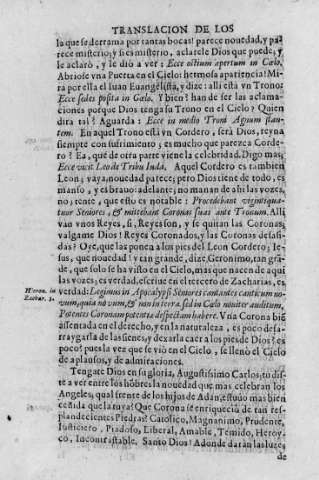 TRANSLACION DE LOS
la que se derrama por tantas bocas! parece nouedad, y pa-
rece misterio; y si es misterio, aclarele Dios que puede; y
le aclarò, y le diò a ver: Ecce ostium apertum in Cœlo.
Abriose vna Puerta en el Cielo: hermosa apariencia! Mi-
ra por ella el Iuan Euangelista, y dize: alli està vn Trono:
Ecce sedes posita in Cœlo. Y bien? han de ser las aclama-
ciones porque Dios tenga su Trono en el Cielo? Quien
dira tal? Aguarda: Ecce in medio Troni Agnum stan-
tem. En aquel Trono està vn Cordero, serà Dios, reyna
siempre con sufrimiento; es mucho que parezca Corde-
ro? Ea, què de otra parte viene la celebridad. Digo mas;
Ecce vicit Leo de Tribu Iuda. Aquel Cordero es tambien
Leon; vaya, nouedad parece; pero Dios tiene de todo, es
manso, y es brauo: adelante; no manan de ahi las vozes,
no; tente, que esto es notable: Procedebant vigintiqua-
tuor Seniores, & mittebant Coronas suas ante Tronum. Alli
van vnos Reyes, si, Reyes son, y se quitan las Coronas;
valgame Dios! Reyes Coronados, y las Coronas desasi-
das? Oye, que las ponen a los pies del Leon Cordero; Ie-
sus, que nouedad! y tan grande, dize Geronimo, tan gran-
de, que solo se ha visto en el Cielo, mas que nacen de aqui
las vozes, es verdad, escriue en el tercero de Zacharias, es
Hieron. in
Zachar. 3.
verdad: Legimus in Apocalypsi Seniores cantantes canticum no-
vum, quia novum, & non in terra, sed in Cœlo noviter auditum,
Potentes Coronam potentiæ despectam habere. Vna Corona biē
assentada en el derecho, y en la naturaleza, es poco desa-
rraygarla de las sienes, y dexarla caer a los pies de Dios? es
poco? pues la vez que se viò en el Cielo, se llenò el Cielo
de aplausos, y de admiraciones.
Tengate Dios en su gloria, Augustissimo Carlos, tu dis-
te a ver entre los hōbres la nouedad que mas celebran los
Angeles, qual frente de los hijos de Adan, estuuo mas bien
ceñida que la tuya? Que Corona se enriqueciò de tan res-
plandecientes Piedras? Catolico, Magnanimo, Prudente,
Iusticiero, Piadoso, Liberal, Amable, Temido, Heroy-
co, Incontrastable. Santo Dios! Adonde daràn las luzes
de